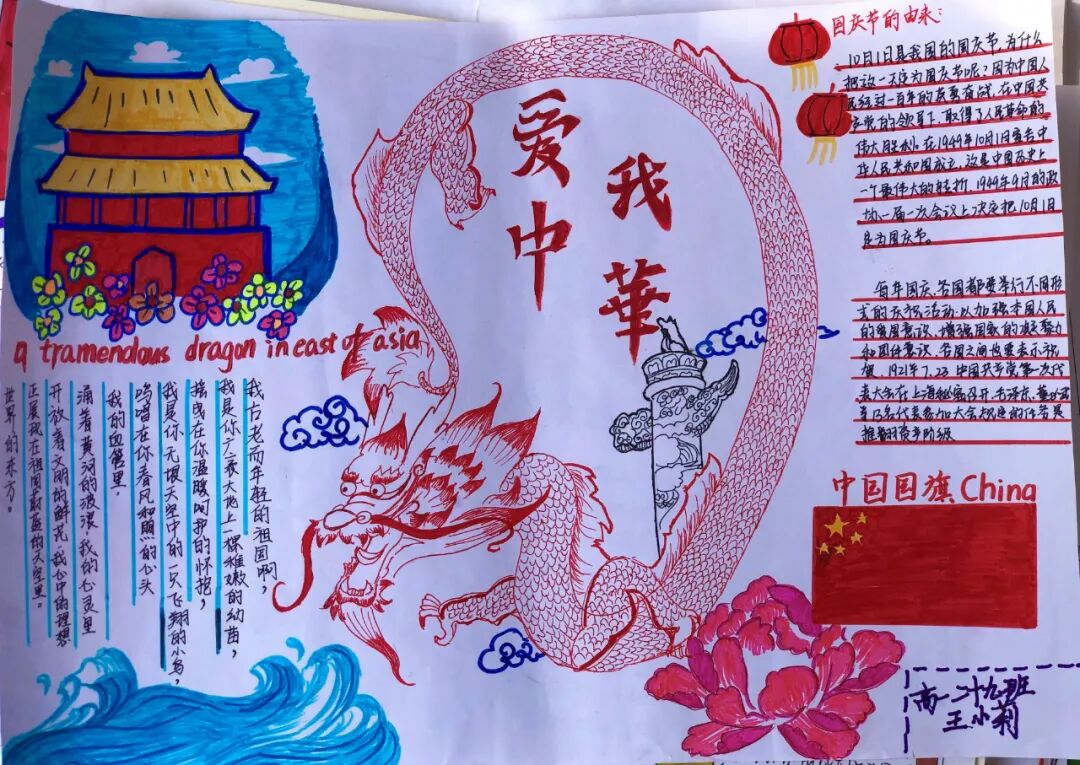 爱我
中華
a tramendous dragon in east of asia
我古老而年轻的祖国啊，
我是你广袤大地上一棵稚嫩的幼苗，
摇曳在你温暖呵护的怀抱；
我是你无垠天空中的一只飞翔的小鸟，
鸣唱在你春风和煦的心头
我的血管里，
涌着黄河的波浪，我的心灵里
开放着文明的鲜花，我心中的理想
正展现在祖国蔚蓝的天空里。
世界的东方。
国庆节的由来：
10月1日是我国的国庆节，为什么
把这一天定为国庆节呢？因为中国人
民经过一百年的英勇奋战，在中国共
产党的领导下，取得了人民革命的
伟大胜利。在1949年10月1日宣告中
华人民共和国成立，这是中国历史上
一个最伟大的转折，1949年9月的政
协一届一次会议上决定把10月1日
定为国庆节。
每年国庆、各国都要举行不同形
式的庆祝活动，以加强本国人民
的爱国意识，增强国家的凝聚力
和团结意识、各国之间也要表示祝
贺，1921年7.23 中国共产党第一次代
表大会在上海秘密召开，毛泽东、董必武
等13名代表参加大会
推翻资产阶级
中国国旗China
高一二十九班
王小莉